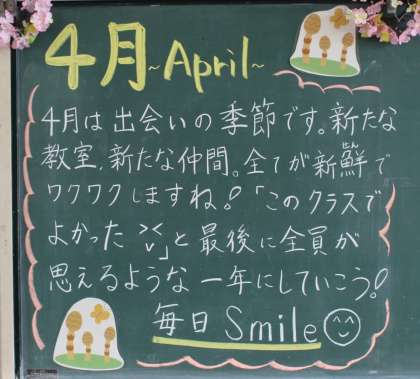 4月 ~April~
4月は出会いの季節です。新たな
教室、新たな仲間。全てが新鮮で
ワクワクしますね！「このクラスで
よかった ><」と最後に全員が
思えるような一年にしていこう！
毎日 Smile